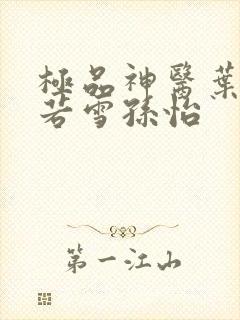 極品神醫葉
若雪孫怡
第一江山